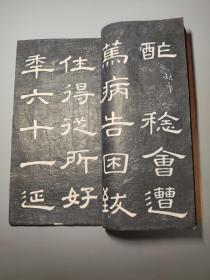 酢稔會遭
篤病告困致
仕得從所好
年六十一延